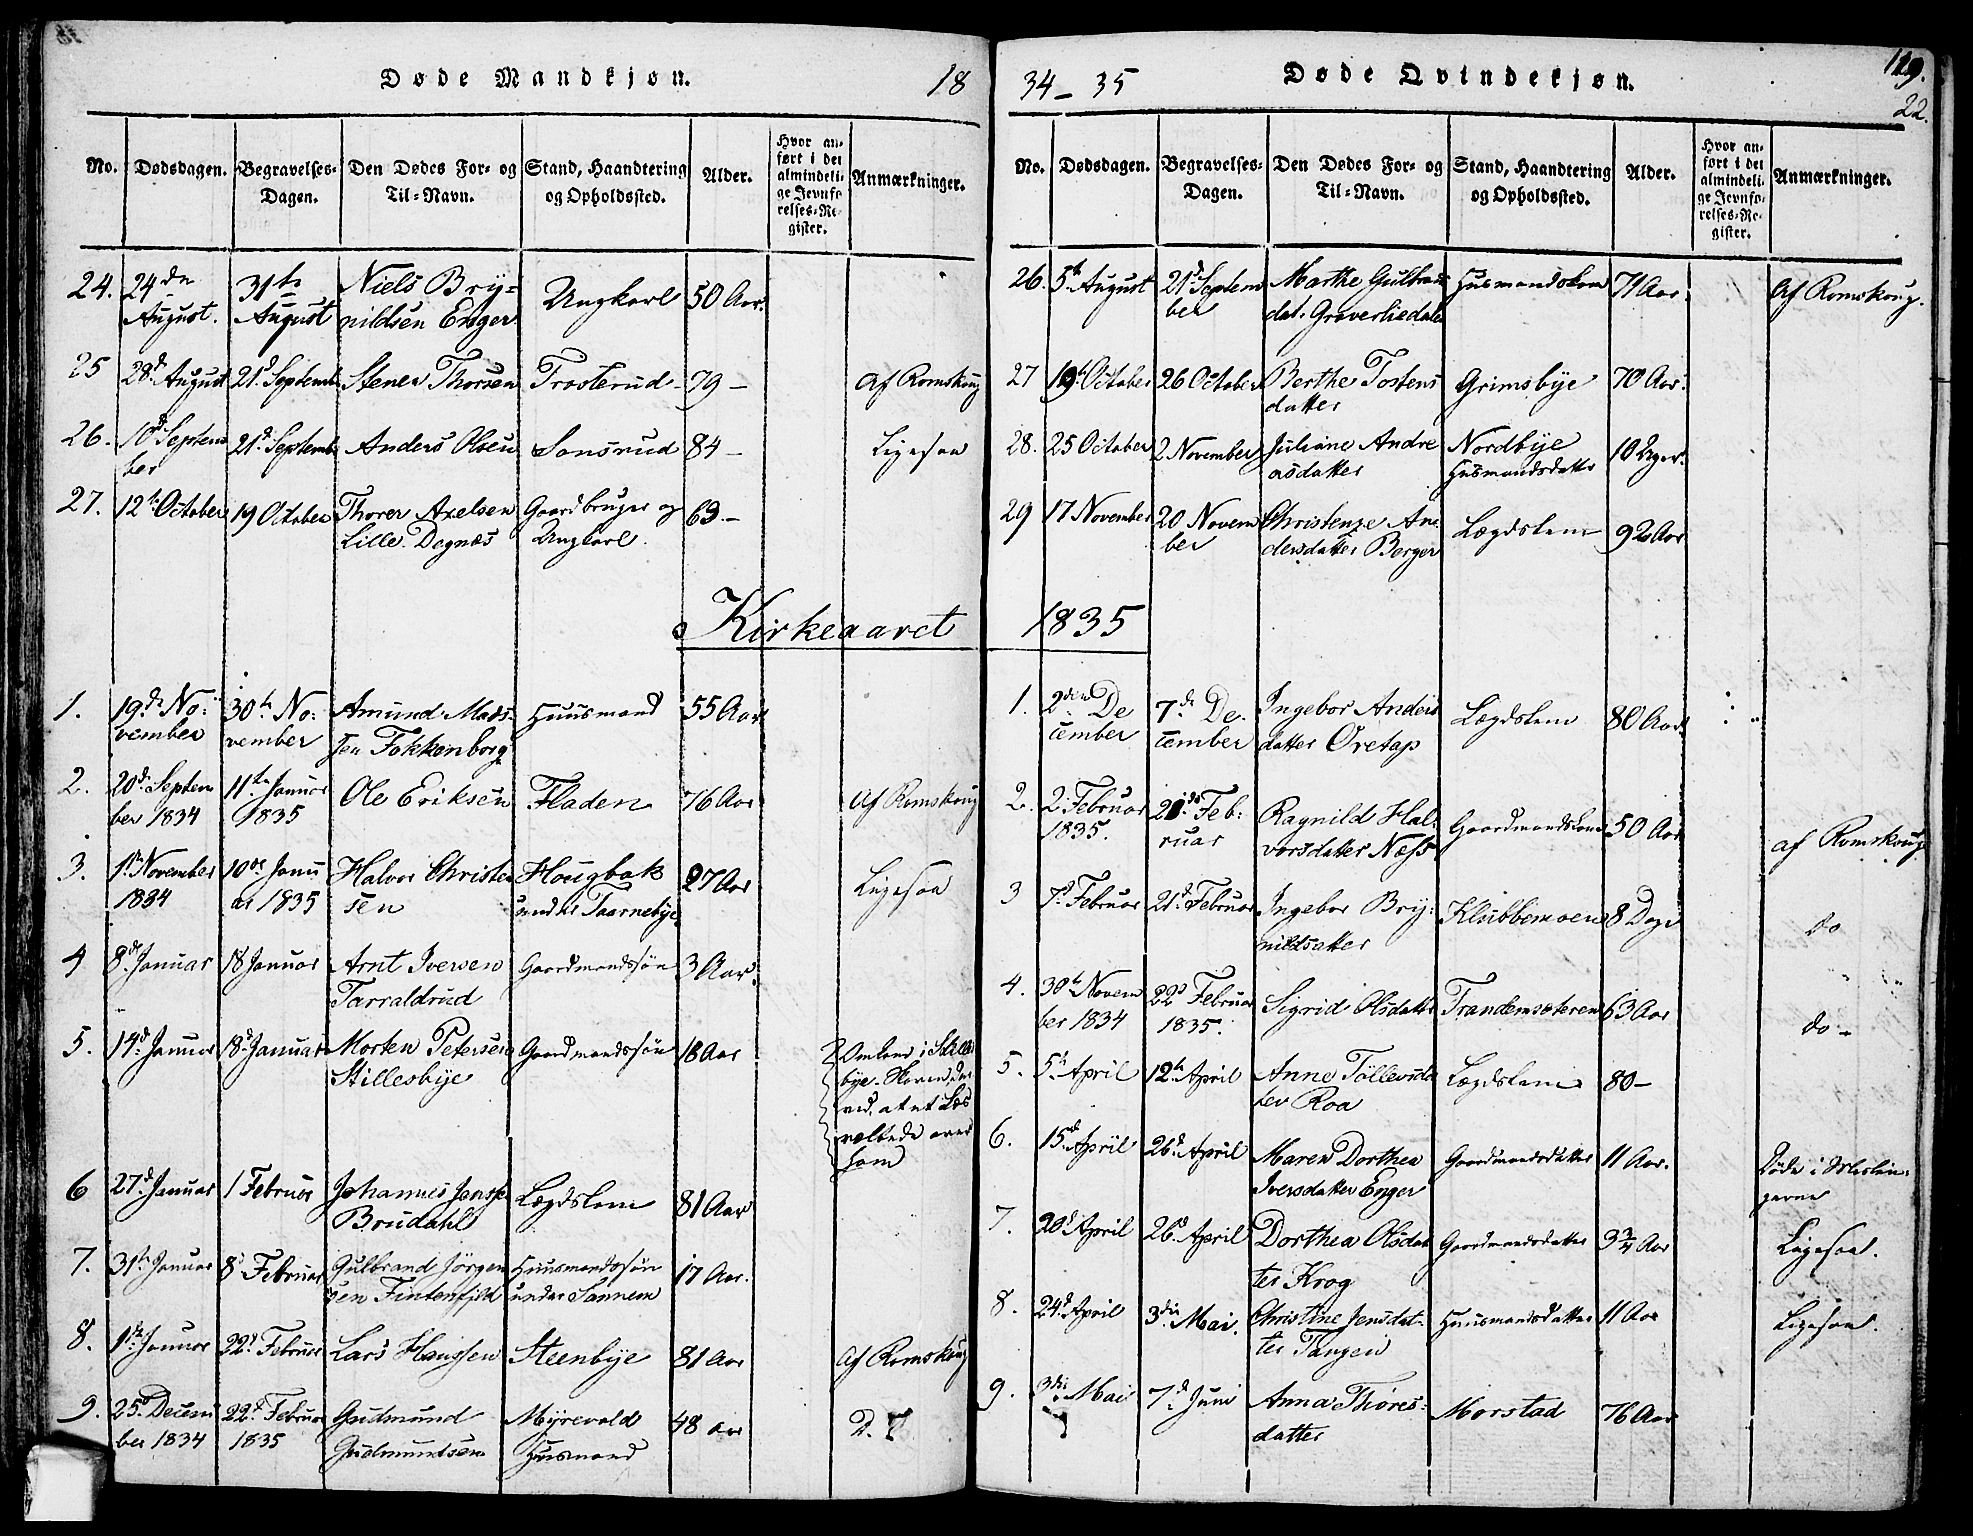 Døde Mandkjøn. 18
No. Dødsdagen. Begravelses-Dagen. Den Dødes For- og Til-Navn. Stand, Haandtering og Opholdssted. Alder. Hvor anført i det almindelige Jevnførelses-Register. Anmærkninger.
24. 24de August. 31te August Niels Brynildsen Enger Ungkarl 50 Aar.
25 28d August 21d Septemb Stener Thorsen Trosterud 79 – Af Romskoug
26. 10d September 21d Septemb Anders Olsen Sonsrud 84 – Ligesaa
27. 12t October 19 October Thorer Axelsen Lille Degnæs Gaardbruger og Ungkarl. 63 –
Kirkeaaret
1. 19de November 30te November Amund Madssen Fokkenborg Huusmand 55 Aar
2. 20de September 1834 11te Januar 1835 Ole Eriksen Fladen 76 Aar Af Romskoug
3. 1te November 1834 10de Januar 1835 Halvor Christensen Hougbak under Taarnebye 27 Aar Ligesaa
4 8de Januar 18 Januar Arnt Iversen Tarraldrud Gaardmandssøn 3 Aar.
5. 14d Januar 18d Januar Morten Petersen Stillesbye Gaardmandssøn 18 Aar Omkom i Stillesbye-Skoven, derved, at et Læs væltede over ham
6 27d Januar 1 Februar Johannes Jenssen Brudahl Lægdslem 81 Aar
7. 31te Januar 8d Februar Gulbrand Jörgensen Fintenfjeld Huusmandssøn under Sannem 17 Aar.
8. 1te Januar 22d Februar Lars Hanssen Steenbye 81 Aar Af Romskoug
9. 25d December 1834 22d Februar 1835 Gudmund Gudmundsen Myrevold Huusmand 48 aar
34 – 35 Døde Qvindekjøn. 119.
22.
No. Dødsdagen. Begravelses-Dagen. Den Dødes For- og Til-Navn. Stand, Haandtering og Opholdssted. Alder. Hvor anført i det almindelige Jevnførelses-Register. Anmærkninger.
26. 5te August 21d September Marthe Gulbrandsdat. Graverliedalen Husmandskone 71 Aar. Af Romskoug.
27 19de October 26 October Berthe Tostensdatter Grimsbye 70 Aar.
28. 25 October 2 November Juliane Andreasdatter Nordbye Husmandsdatter 10 Uger.
29 17 November 20 November Christenze Andersdatter Berger Lægdslem 92 Aar
1835
1. 2den December 7de December Ingebor Andersdatter Oretap Lægdslem 80 Aar.
2. 2 Februar 1835. 21de Februar Ragnild Halvorsdatter Næss Gaardmandskone 50 Aar af Romskoug
3 7d Februar 21d Februar Ingebor Brynildsatter Klubbemoen 8 Dage do
4. 30te November 1834 22d Februar 1835. Sigrid Olsdatter Trandemsæteren 63 Aar do –
5. 5te April 12te April Anne Töllevsdatter Roa Lægdslem 80 –
6. 15d April 26d April Maren Dorthea Iversdatter Enger Gaardmandsdatter 11 Aar. Døde i Meslingerne
7. 20d April 26d April Dorthea Olsdatter Krog Gaardmandsdatter 3 3/4 Aar Ligesaa.
8. 24d April 3die Mai. Christine Jensdatter Tangen Huusmandsdatter 11 Aar Ligesaa.
9. 3die Mai 7d Juni Anna Thoresdatter Morstad 76 Aar